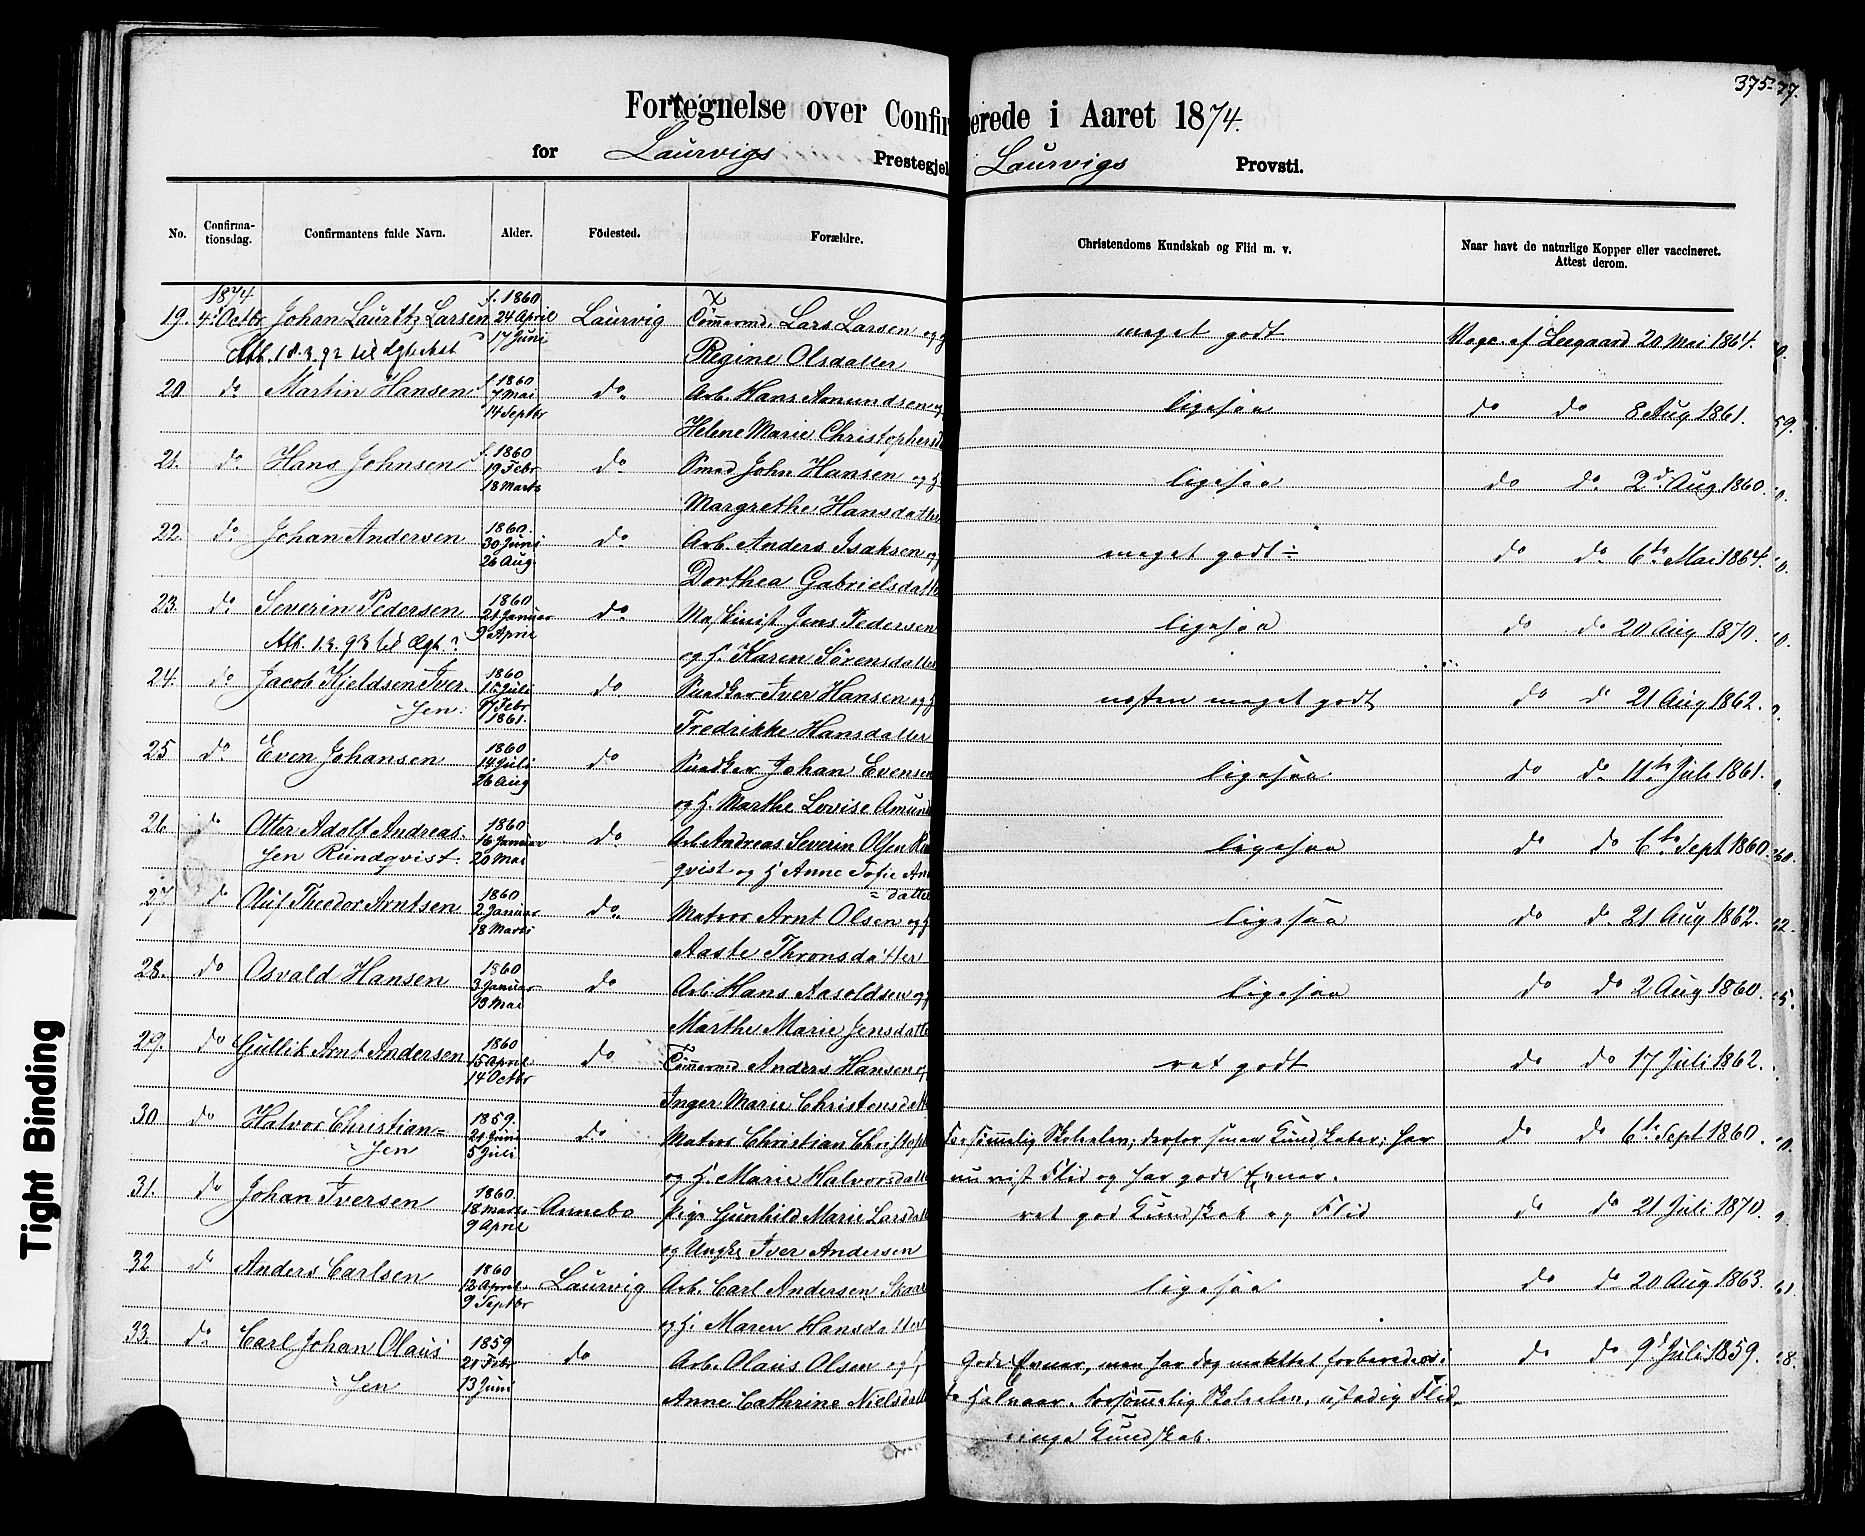 375. 77.
Fortegnelse over Confirmerede i Aaret 1874.
for Laurvigs Prestegjel Laurvigs Provsti.
No. Confirma-tionsdag. Confirmantens fulde Navn. Alder. Födested. Forældre. Christendoms Kundskab og Flid m. v. Naar havt de naturlige Kopper eller vaccineret. Attest derom.
1874 f. 1860
19. 4d Octbr Johan Lauritz Larsen 24 April Laurvig Tømmermd. Lars Larsen og H meget godt Vacc. af Leegaard 20 Mai 1864.
Att. 18.3.92 til 17 Juni Regine Olsdatter
f. 1860
20. do Martin Hansen 7 Mai do Arb. Hans Amundsen og ligesaa do do 8 Aug 1861.
14 Septbr Helene Marie Christophersd
f. 1860
21. do Hans Johnsen 19 Febr do Smed John Hansen og H. ligesaa do do 2d Aug 1860.
18 Marts Margrethe Hansdatter
1860.
22. do Johan Andersen 30 Juni do Arb. Anders Isaksen og meget godt ÷ do do 6te Mai 1864.
26 Aug. Dorthea Gabrielsdatt
1860
23. do Severin Pedersen 21 Januar do Maskinist Jens Pedersen ligesaa do do 20 Aug 1870.
Att. 1.3.93 til Ægt. 9 April og H. Karen Sørensdatter
1860
24. do Jacob Kjeldsen Iver- 15 Juli do Snedker Iver Hansen og H næsten meget godt do do 21 Aug 1862.
sen. 17 Febr 1861. Fredrikke Hansdatter
1860
25 do Even Johansen 14 Juli do Snedker Johan Evensen ligesaa do do 11te Juli 1861.
26 Aug og H. Marthe Lovise Amund
1860
26. do Otter Adolf Andreas- 16 Januar do Arb Andreas Severin Olsen Run ligesaa do do 6te Sept 1860.
sen Rundqvist. 20 Mai qvist og H Anne Sofie And
= datter
1860
27. do Oluf Theodor Arntsen 2 Januar do Matros Arnt Olsen og H ligesaa do do 21 Aug 1862.
18 Marts Aaste Thronsdatter
1860
28. do Osvald Hansen 3 Januar do Arb. Hans Aasoldsen og ligesaa do do 2 Aug 1860.
13 Mai Marthe Marie Jensdatte
1860
29. do Gullik Arnt Andersen 15 April do Tømmermd Anders Hansen og ret godt do do 17 Juli 1862.
14 Octbr Inger Marie Christensdatt
1859.
30. do Halvor Christian= 21 Juni do Matros Christian Christoph Forsømmelig Skolesøgen, derfor smaa Kundskaber; har do do 6te Sept 1860.
sen 5 Juli og H. Marie Halvorsdatte nu vist Flid og har gode Evner.
1860.
31. do Johan Iversen 18 Marts Aannebo Pige Gunhild Marie Larsdatt ret god Kundskab og Flid do do 21 Juli 1870.
9 April og Ungk. Iver Andersen
1860
32 do Anders Carlsen 12 April Laurvig Arb. Carl Andersen ligesaa do do 20 Aug 1863.
9 Septbr og H. Maren Hansdatter
1859
33. do Carl Johan Olaus 21 Febr do Arb. Olaus Olsen og H Gode Evner, men har dog maattet forberedes i do do 9d Juli 1859.
sen 13 Juni Anne Cathrine Nielsdatt Halvaar. Forsømmelig Skolesøgen, Flid,
ringe Kundskab.
Tight Binding